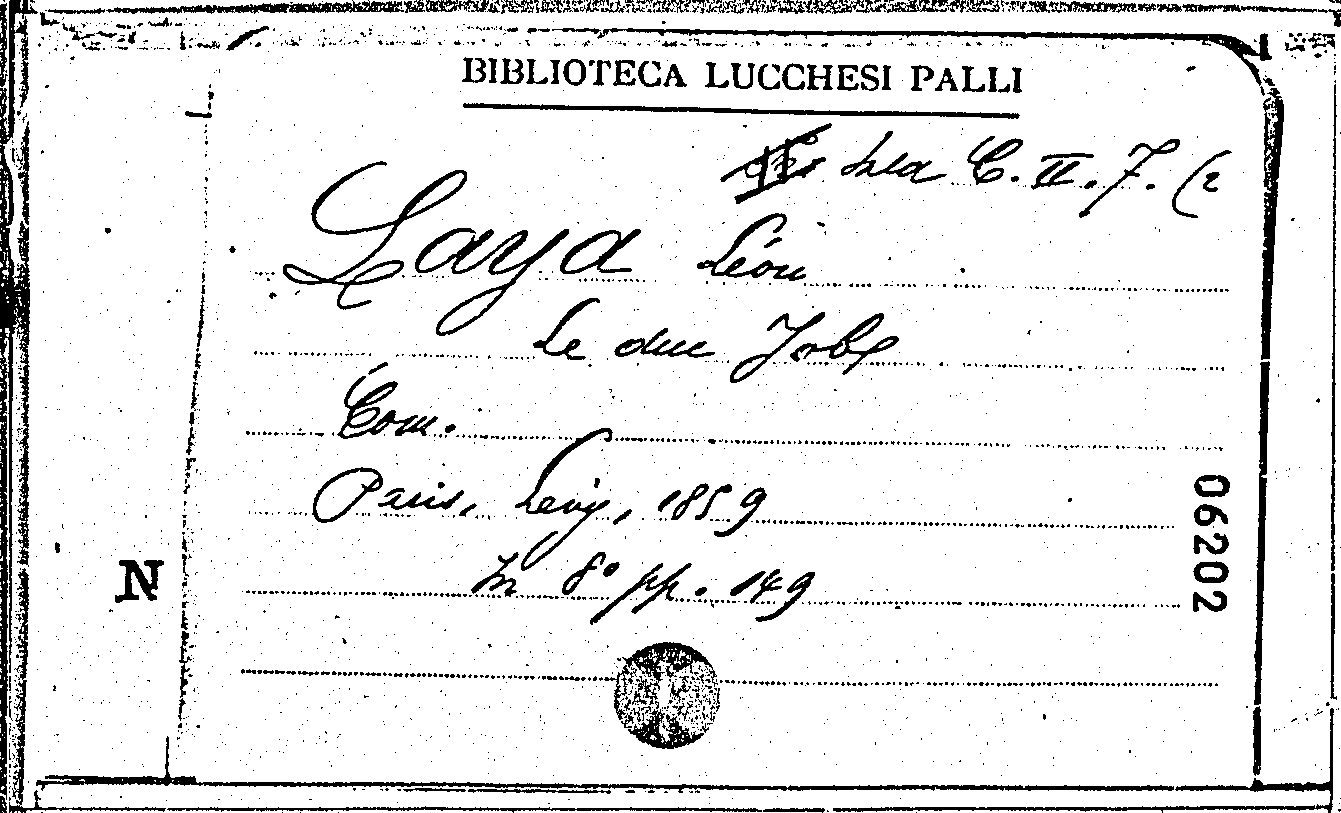 BIBLIOTECA LUCCHESI PALLI
Sala C. II. 7. (2
Laya Léon
Le duc Job
Com.
Paris, Levy, 1859
In 8° pp. 149
06202
N